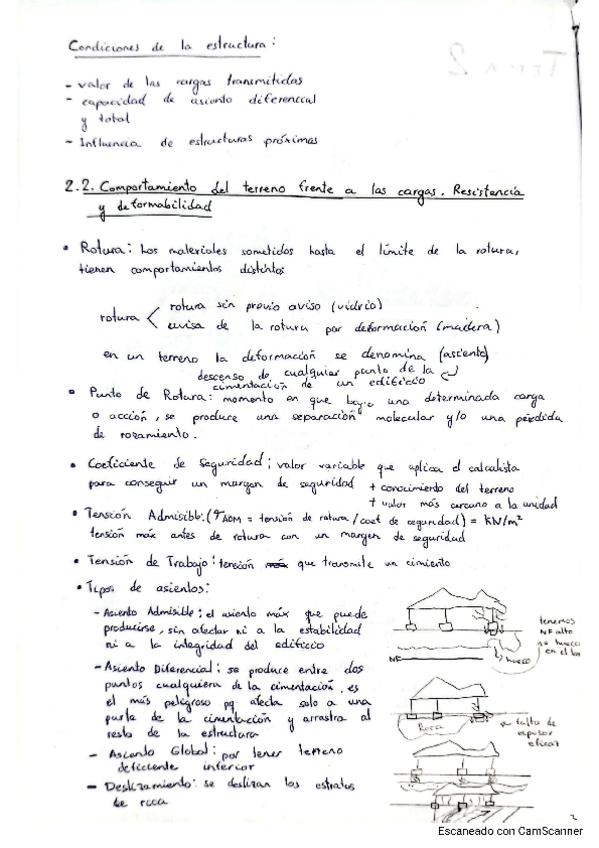 Condiciones de la estructura:
- valor de las cargas transmitidas
- capacidad de asiento diferencial
y total
- Influencia de estructuras próximas
2.2. Comportamiento del terreno frente a las cargas. Resistencia
y deformabilidad
• Rotura: Los materiales sometidos hasta el límite de la rotura,
tienen comportamientos distintos
rotura < rotura sin previo aviso (vidrio)
avisa de la rotura por deformación (madera)
en un terreno la deformación se denomina (asiento)
descenso de cualquier punto de la
cimentación de un edificio
• Punto de Rotura: momento en que bajo una determinada carga
o acción, se produce una separación molecular y/o una pérdida
de rozamiento.
• Coeficiente de Seguridad: valor variable que aplica el calculista
para conseguir un margen de seguridad + conocimiento del terreno
+ valor más cercano a la unidad
• Tensión Admisible: (σADM = tensión de rotura / coef de seguridad) = kN/m²
tensión máx antes de rotura con un margen de seguridad
• Tensión de Trabajo: tensión que transmite un cimiento
• Tipos de asientos:
- Asiento Admisible: el asiento máx que puede
producirse, sin afectar ni a la estabilidad
ni a la integridad del edificio
- Asiento Diferencial: se produce entre dos
puntos cualquiera de la cimentación. es
el más peligroso pq afecta solo a una
parte de la cimentación y arrastra al
resto de la estructura
- Asiento Global: por tener terreno
deficiente inferior
- Deslizamiento: se deslizan los estratos
de roca
tenemos
NF alto
hueco
NF
hueco
Roca
falta de
2
Escaneado con CamScanner